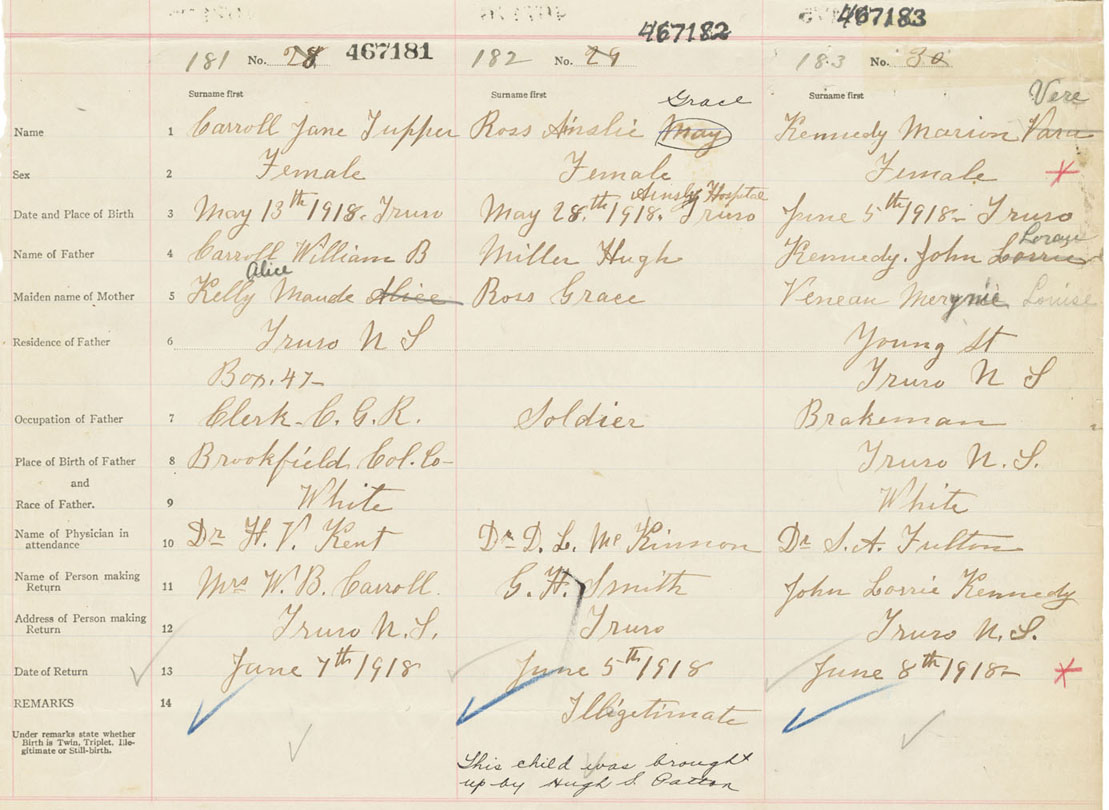 467182 467183
181 No. 28 467181 182 No. 29 183 No. 30
Surname first Surname first Surname first
Grace Vere
Name 1 Carroll Jane Tupper Ross Ainslie May Kennedy Marion Vara
Sex 2 Female Female Female
Ainsley Hospital
Date and Place of Birth 3 May 13th 1918. Truro May 28.th 1918. Truro June 5th 1918- Truro
Name of Father 4 Carroll William B Miller Hugh Kennedy. John Lorrie
Alice
Maiden name of Mother 5 Kelly Maude Alice Ross Grace Veneau Louise
Residence of Father 6 Truro N S Young St
Box. 47- Truro N S
Occupation of Father 7 Clerk- C. G. R. Soldier Brakeman
Place of Birth of Father 8 Brookfield, Col. Co- Truro N. S.
and
Race of Father. 9 White White
Name of Physician in
attendance 10 Dr H. V. Kent Dr D. L. Mc Kinnon Dr S. A. Fulton
Name of Person making
Return 11 Mrs W. B. Carroll. G. H. Smith John Lorrie Kennedy
Address of Person making
Return 12 Truro N. S. Truro Truro N. S.
Date of Return 13 June 7th 1918 June 5th 1918 June 8th 1918-
REMARKS 14 Illigetimate
Under remarks state whether
Birth is Twin, Triplet, Ille-
gitimate or Still-birth.
This child was brought
up by Hugh S. Patton